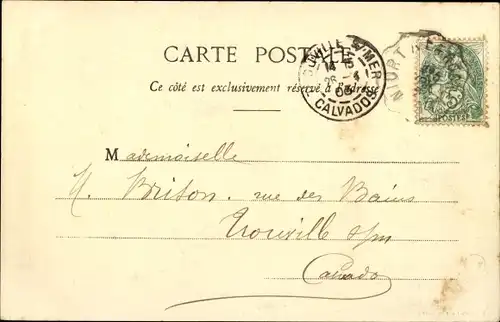 CARTE POSTALE
Ce côté est exclusivement réservé à l'adresse
TROUVILLE S/MER
14 15
26 4
03
CALVADOS
NIORT
5
POSTES
Mademoiselle
Brison. rue des Bains
Trouville s/m
Calvados